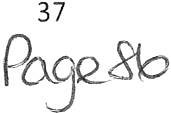 37
Page 86